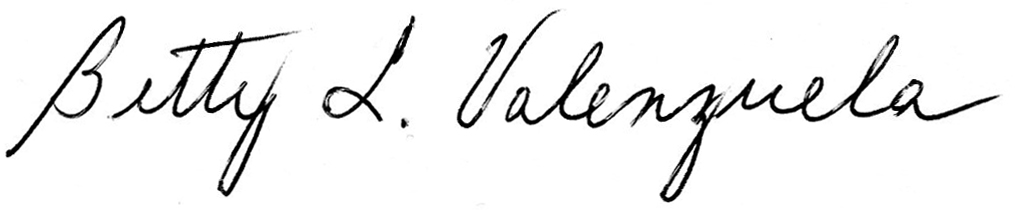 Betty L. Valenzuela